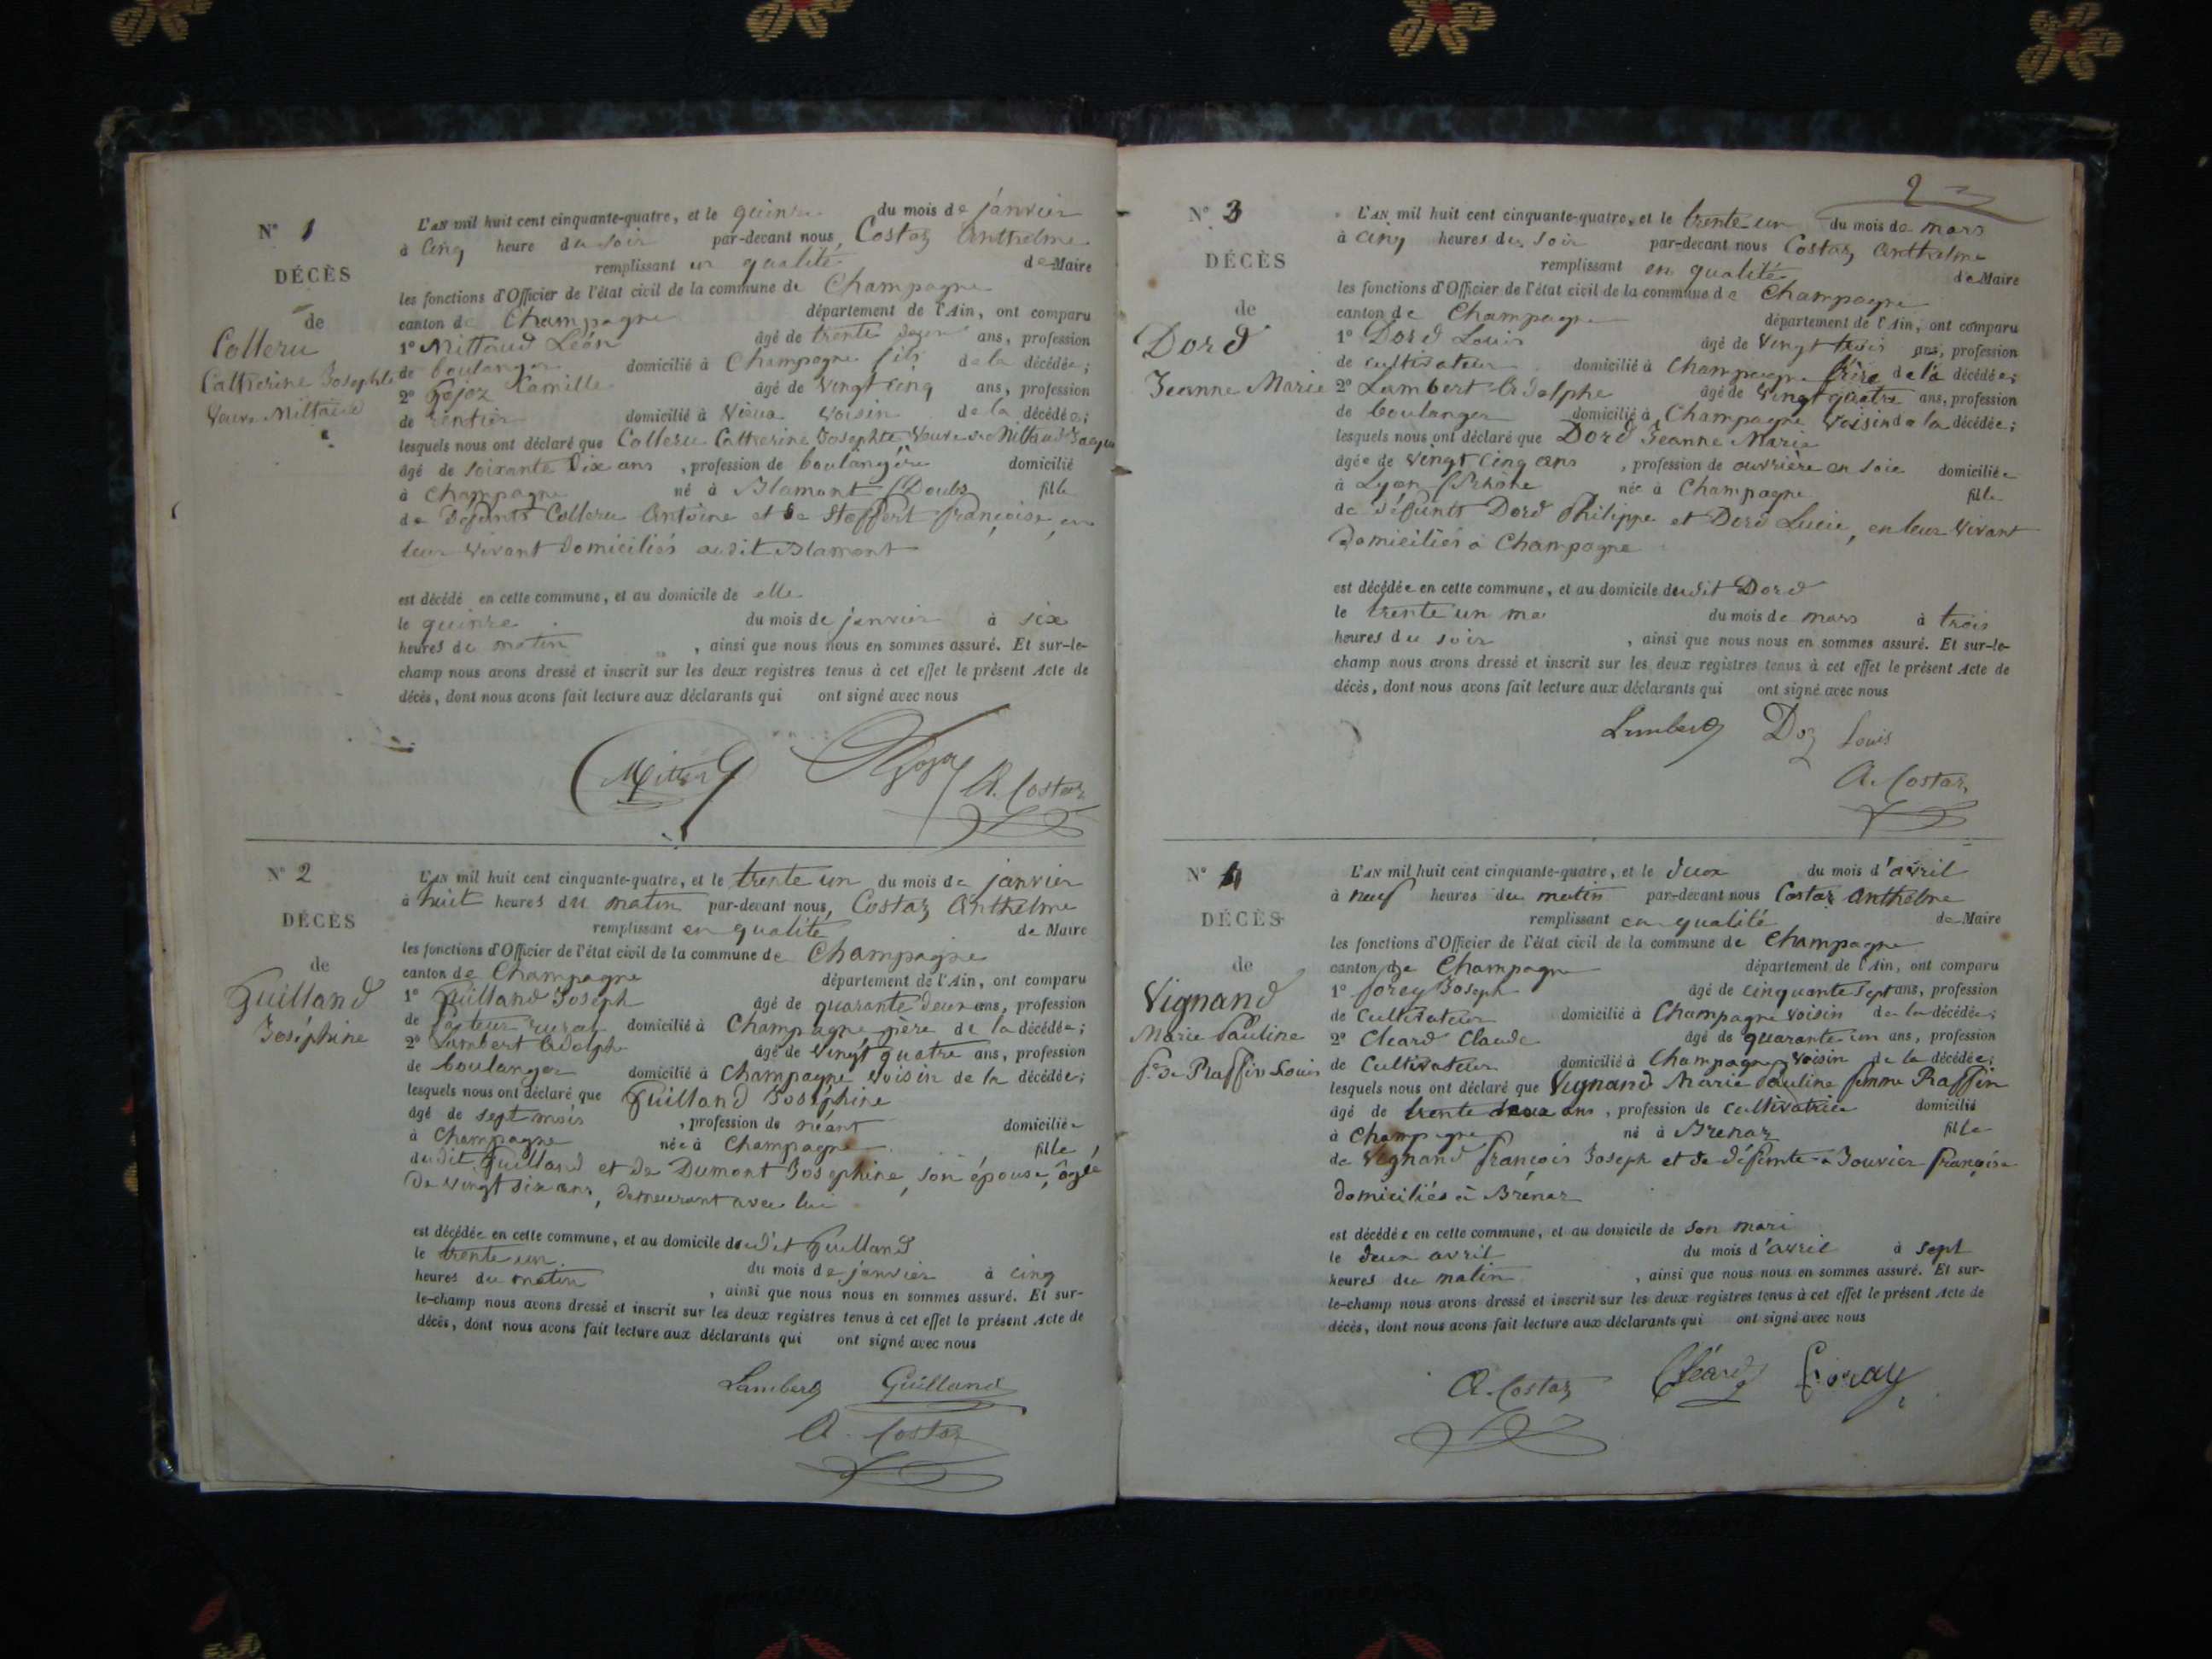 N° 1
DÉCÈS
de
Colleru
Catherine Josephte
Veuve Mittaud
L'AN mil huit cent cinquante-quatre, et le quinze du mois de janvier
à cinq heure du soir par-devant nous, Costaz Anthelme
remplissant en qualité de Maire
les fonctions d'Officier de l'état civil de la commune de Champagne
canton de Champagne département de l'Ain, ont comparu
1° Mittaud Léon âgé de trente ans, profession
de boulanger domicilié à Champagne fils de la décédée;
2° Camille âgé de vingt cinq ans, profession
de rentier domicilié à Vieu voisin de la décédée;
lesquels nous ont déclaré que Colleru Catherine Josephte Veuve de Mittaud
âgé de soixante dix ans, profession de boulangère domicilié
à Champagne né à Blamont (Doubs fille
de défunts Colleru Antoine et de Stoffert françoise, en
leur vivant domiciliés audit Blamont
est décédé en cette commune, et au domicile de elle
le quinze du mois de janvier à six
heures de matin, ainsi que nous nous en sommes assuré. Et sur-le-
champ nous avons dressé et inscrit sur les deux registres tenus à cet effet le présent Acte de
décès, dont nous avons fait lecture aux déclarants qui ont signé avec nous
A. Costaz
N° 2
DÉCÈS
de
Guilland
Joséphine
L'AN mil huit cent cinquante-quatre, et le trente un du mois de janvier
à huit heures du matin par-devant nous, Costaz Anthelme
remplissant en qualité de Maire
les fonctions d'Officier de l'état civil de la commune de Champagne
canton de Champagne département de l'Ain, ont comparu
1° Guilland Joseph âgé de quarante deux ans, profession
de facteur rural domicilié à Champagne père de la décédée;
2° Lambert Adolphe âgé de vingt quatre ans, profession
de boulanger domicilié à Champagne voisin de la décédée;
lesquels nous ont déclaré que Guilland Joséphine
âgé de sept mois, profession de néant domiciliée
à Champagne née à Champagne fille
dudit Guilland et de Dumont Josephine, son épouse, âgée
de vingt six ans, demeurant avec lui
est décédée en cette commune, et au domicile dudit Guilland
le trente un du mois de janvier à cinq
heures du matin, ainsi que nous nous en sommes assuré. Et sur-
le-champ nous avons dressé et inscrit sur les deux registres tenus à cet effet le présent Acte de
décès, dont nous avons fait lecture aux déclarants qui ont signé avec nous
Lambert Guilland
A. Costaz
2
N° 3
DÉCÈS
de
Dord
Jeanne Marie
L'AN mil huit cent cinquante-quatre, et le trente un du mois de mars
à cinq heures du soir par-devant nous Costaz Anthelme
remplissant en qualité de Maire
les fonctions d'Officier de l'état civil de la commune de Champagne
canton de Champagne département de l'Ain, ont comparu
1° Dord Louis âgé de vingt trois ans, profession
de cultivateur domicilié à Champagne frère de la décédée;
2° Lambert Adolphe âgé de vingt quatre ans, profession
de boulanger domicilié à Champagne voisin de la décédée;
lesquels nous ont déclaré que Dord Jeanne Marie
âgée de vingt cinq ans, profession de ouvrière en soie domiciliée
à Lyon (Rhône née à Champagne fille
de défunts Dord Philippe et Dord Lucie, en leur vivant
domiciliés à Champagne
est décédée en cette commune, et au domicile dudit Dord
le trente un ma du mois de mars à trois
heures du soir, ainsi que nous nous en sommes assuré. Et sur-le-
champ nous avons dressé et inscrit sur les deux registres tenus à cet effet le présent Acte de
décès, dont nous avons fait lecture aux déclarants qui ont signé avec nous
Lambert Dor Louis
A. Costaz
N° 4
DÉCÈS
de
Vignand
Marie Pauline
fe de Raffin Louis
L'AN mil huit cent cinquante-quatre, et le deux du mois d'avril
à neuf heures du matin par-devant nous Costaz Anthelme
remplissant en qualité de Maire
les fonctions d'Officier de l'état civil de la commune de Champagne
canton de Champagne département de l'Ain, ont comparu
1° forey Joseph âgé de cinquante sept ans, profession
de Cultivateur domicilié à Champagne voisin de la décédée;
2° Cleard Claude âgé de quarante un ans, profession
de Cultivateur domicilié à Champagne voisin de la décédée;
lesquels nous ont déclaré que Vignand Marie Pauline femme Raffin
âgé de trente deux ans, profession de cultivatrice domicilié
à Champagne né à Brénaz fille
de Vignand françois Joseph et de défunte Bouvier françoise
domiciliés à Brénaz
est décédée en cette commune, et au domicile de son mari
le deux avril du mois d'avril à sept
heures du matin, ainsi que nous nous en sommes assuré. Et sur-
le-champ nous avons dressé et inscrit sur les deux registres tenus à cet effet le présent Acte de
décès, dont nous avons fait lecture aux déclarants qui ont signé avec nous
A. Costaz Cléard foray